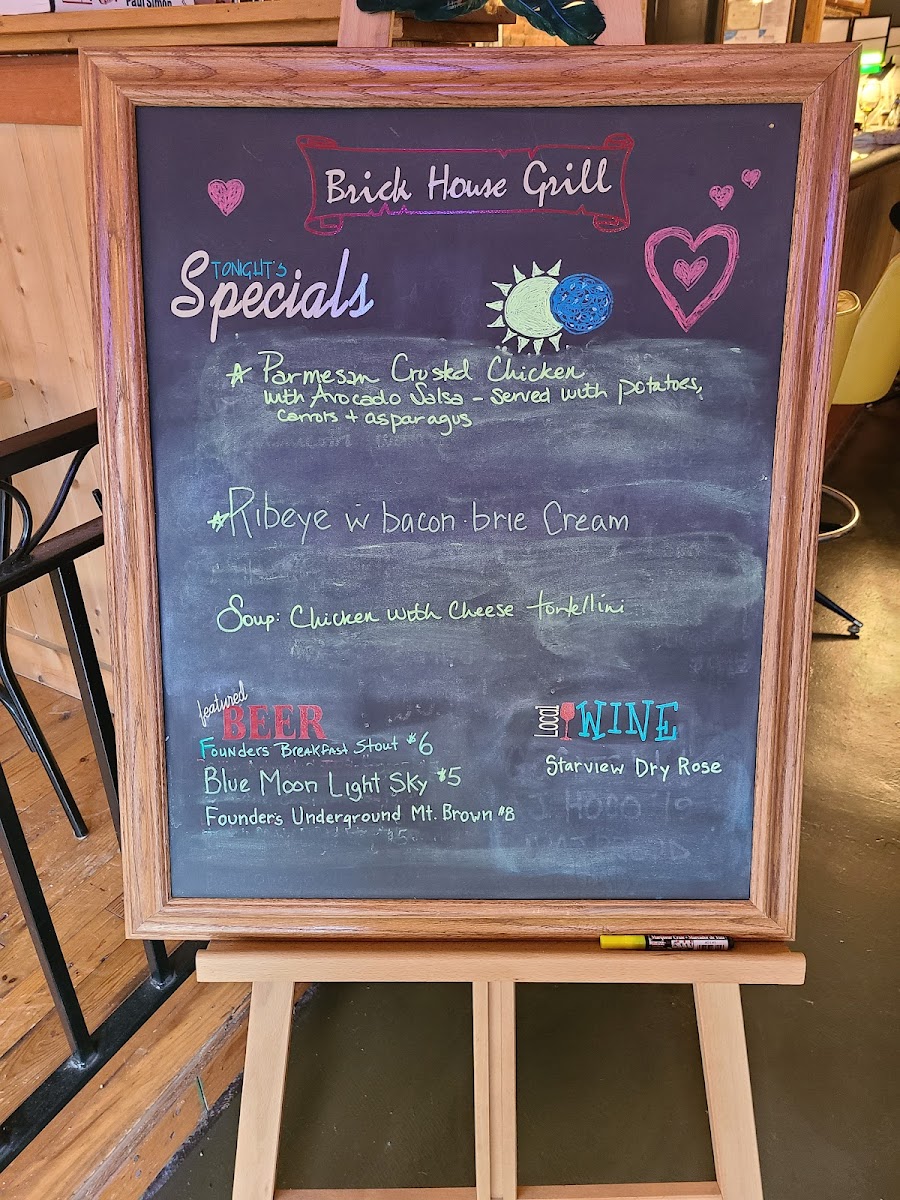 Paul Simon
Brick House Grill
TONIGHT'S
Specials
Parmesan Crustd Chicken
with Avocado Salsa - served with potatoes,
carrots + asparagus
Ribeye w bacon·brie Cream
Soup: Chicken with Cheese tortellini
featured
BEER
Founders Breakfast Stout $6
Blue Moon Light Sky $5
Founder's Underground Mt. Brown $8
Local WINE
Starview Dry Rose